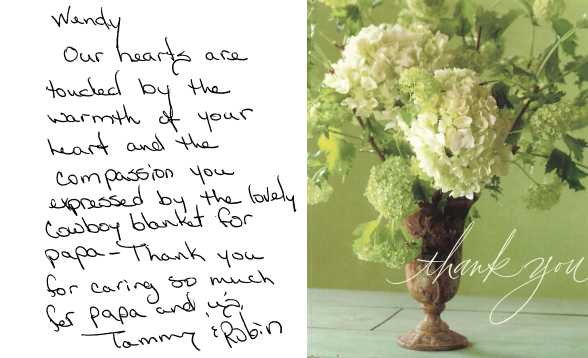 Wendy
Our hearts are
touched by the
warmth of your
heart and the
compassion you
expressed by the lovely
Cowboy blanket for
papa - Thank you
for caring so much
for papa and us,
Tammy & Robin
thank you